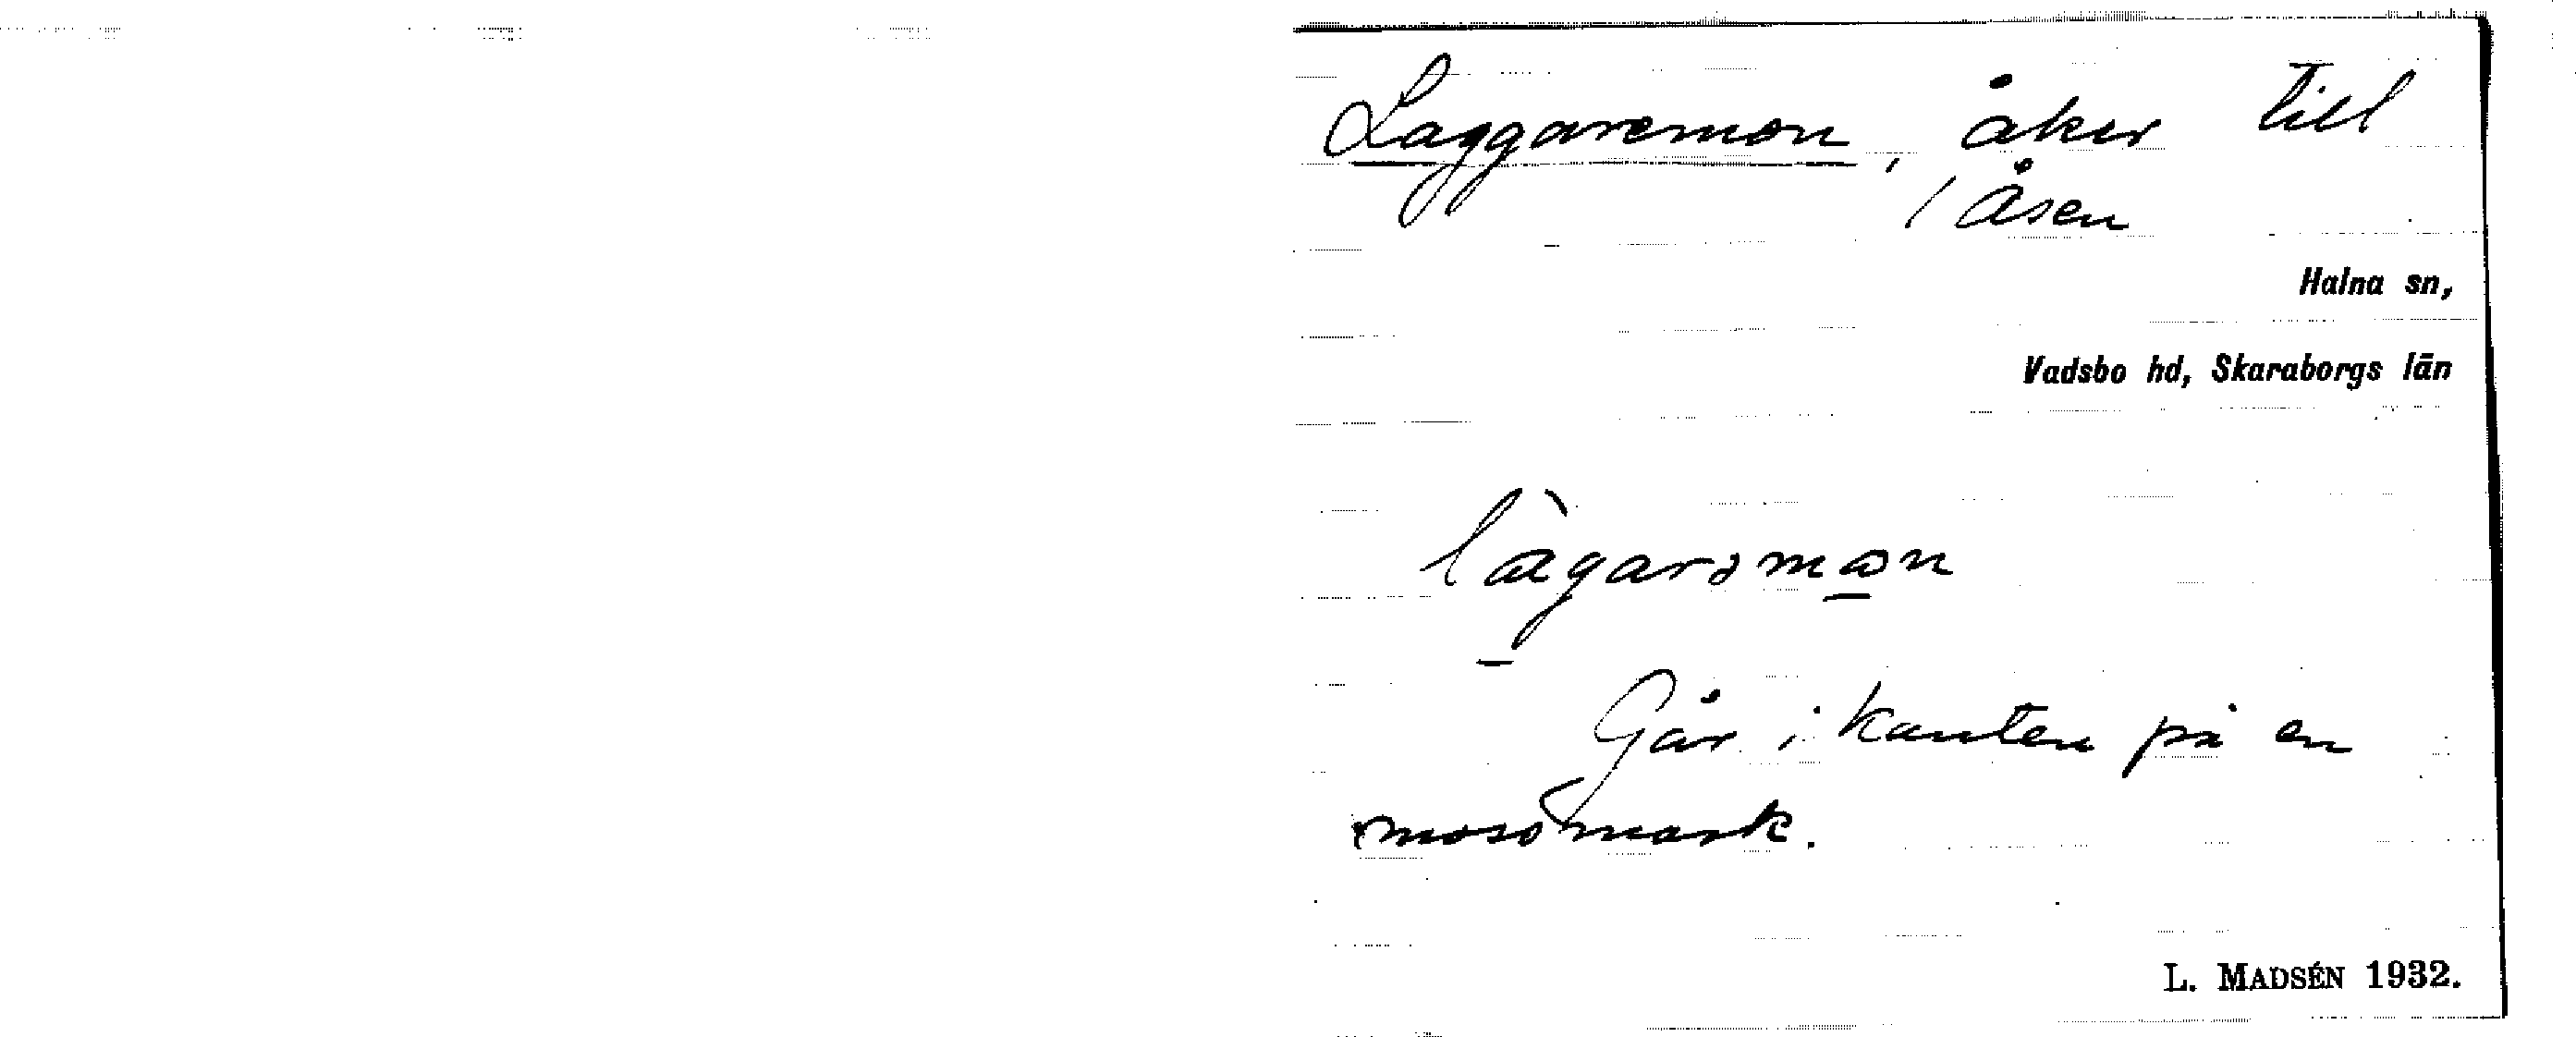 Laggaremon, åker till
/ Åsen
Halna sn,
Vadsbo hd, Skaraborgs län
Går i kanten på en
mossmark.
L. MADSÉN 1932.